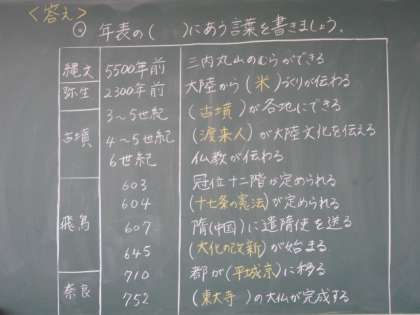 <答え>
◎ 年表の( )にあう言葉を書きましょう.
縄文 5500年前 三内丸山のむらができる
弥生 2300年前 大陸から(米)づくりが伝わる
古墳 3～5世紀 (古墳)が各地にできる
4～5世紀 (渡来人)が大陸文化を伝える
6世紀 仏教が伝わる
飛鳥 603 冠位十二階が定められる
604 (十七条の憲法)が定められる
607 隋(中国)に遣隋使を送る
645 (大化の改新)が始まる
奈良 710 都が(平城京)に移る
752 (東大寺)の大仏が完成する